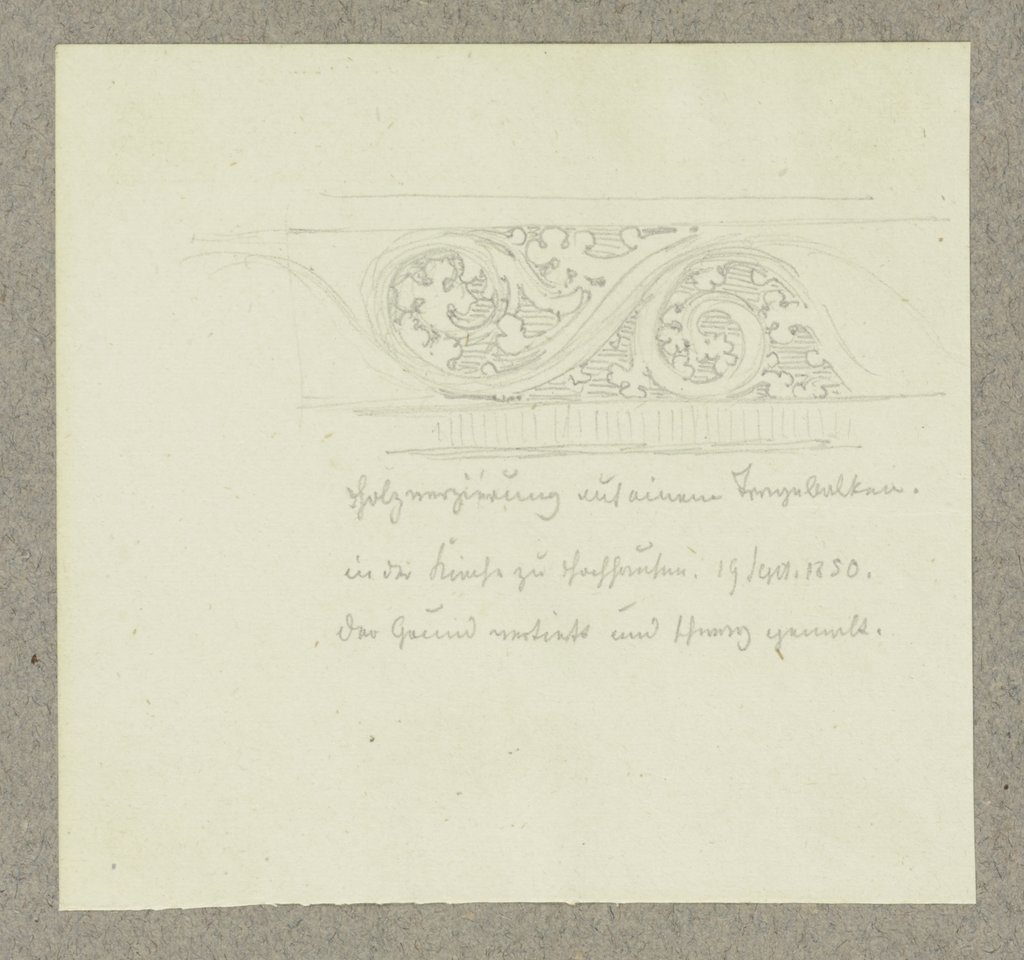 Holzverzierung auf einem Tragebalken.
in der Kirche zu Hochhausen. 19 Sept. 1850.
Der Grund vertieft und schwarz gemalt.